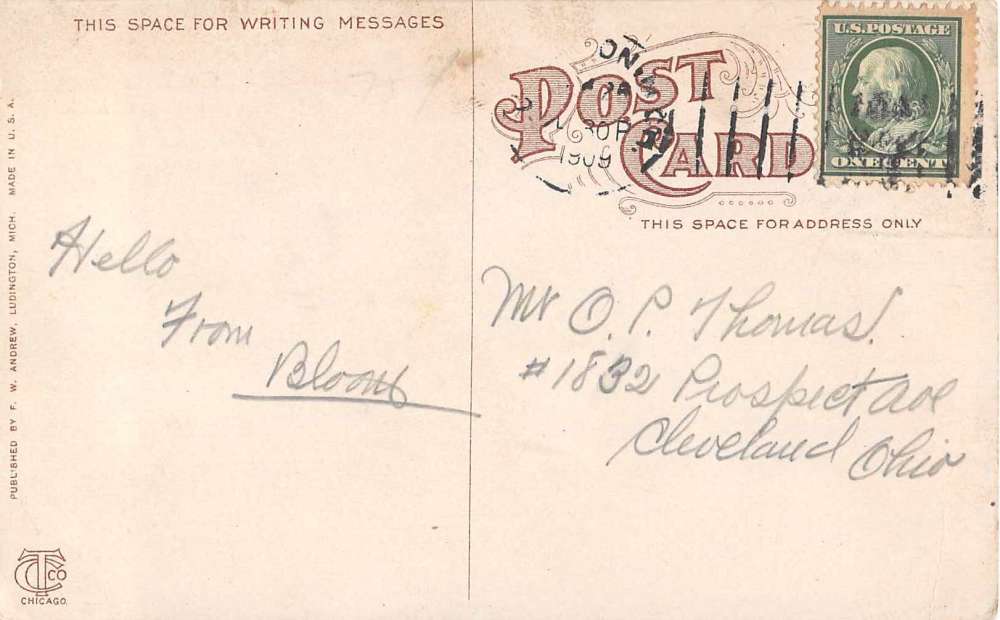 THIS SPACE FOR WRITING MESSAGES
POST
CARD
U.S. POSTAGE
ONE CENT
1909
THIS SPACE FOR ADDRESS ONLY
Hello
From
Mr O. P. Thomas.
#1832 Prospect Ave
Cleveland Ohio
PUBLISHED BY F. W. ANDREW, LUDINGTON, MICH. MADE IN U. S. A.
CTCO
CHICAGO.